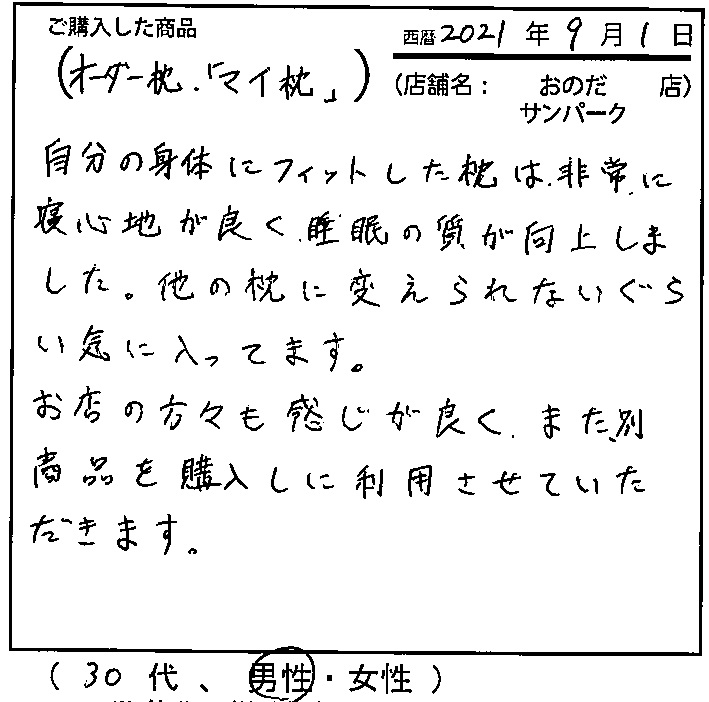 ご購入した商品
西暦2021年9月1日
(オーダー枕.「マイ枕」)
(店舗名: おのだ 店)
サンパーク
自分の身体にフィットした枕は、非常に
寝心地が良く、睡眠の質が向上しま
した。他の枕に変えられないぐら
い気に入ってます。
お店の方々も感じが良く、また、別
商品を購入しに利用させていた
だきます。
(30代、男性・女性)